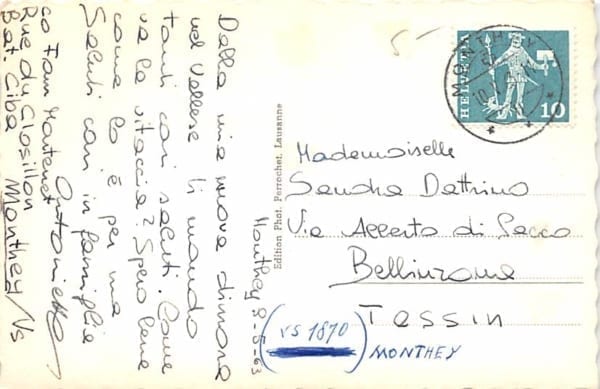 Monthey 9-5-63
Dalla mia nuova dimora
nel Vallese ti mando
tanti cari saluti. Come
va la vitaccia? Spero bene
come lo è per me
Saluti cari in famiglia
Antonietta
co Fam Martenet
Rue du Closillon
Bat. Ciba Monthey/Vs
Edition Phot. Perrochet, Lausanne
MONTHEY
HELVETIA
10
Mademoiselle
Sandra Dattrino
Via Alberto di Sacco
Bellinzona
Tessin
(VS 1870)
MONTHEY